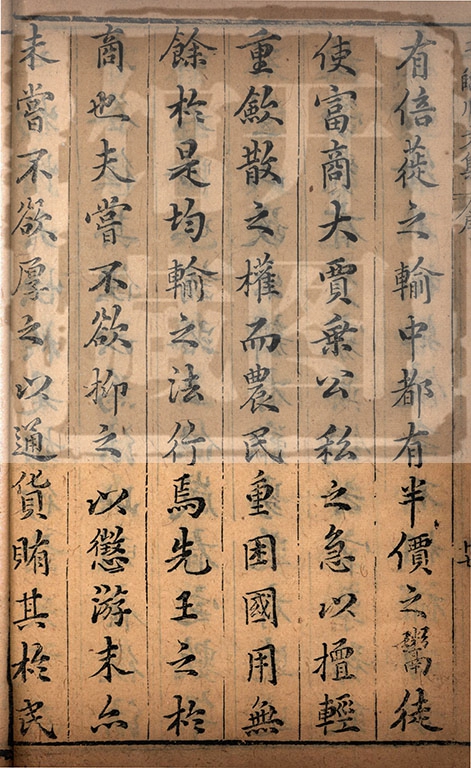 有倍蓰之輸中都有半價之鬻徒
使富商大賈乗公私之急以擅輕
重斂散之權而農民重困國用無
餘於是均輸之法行焉先王之於
商也夫嘗不欲抑之以懲游末亦
未嘗不欲厚之以通貨賄其於民